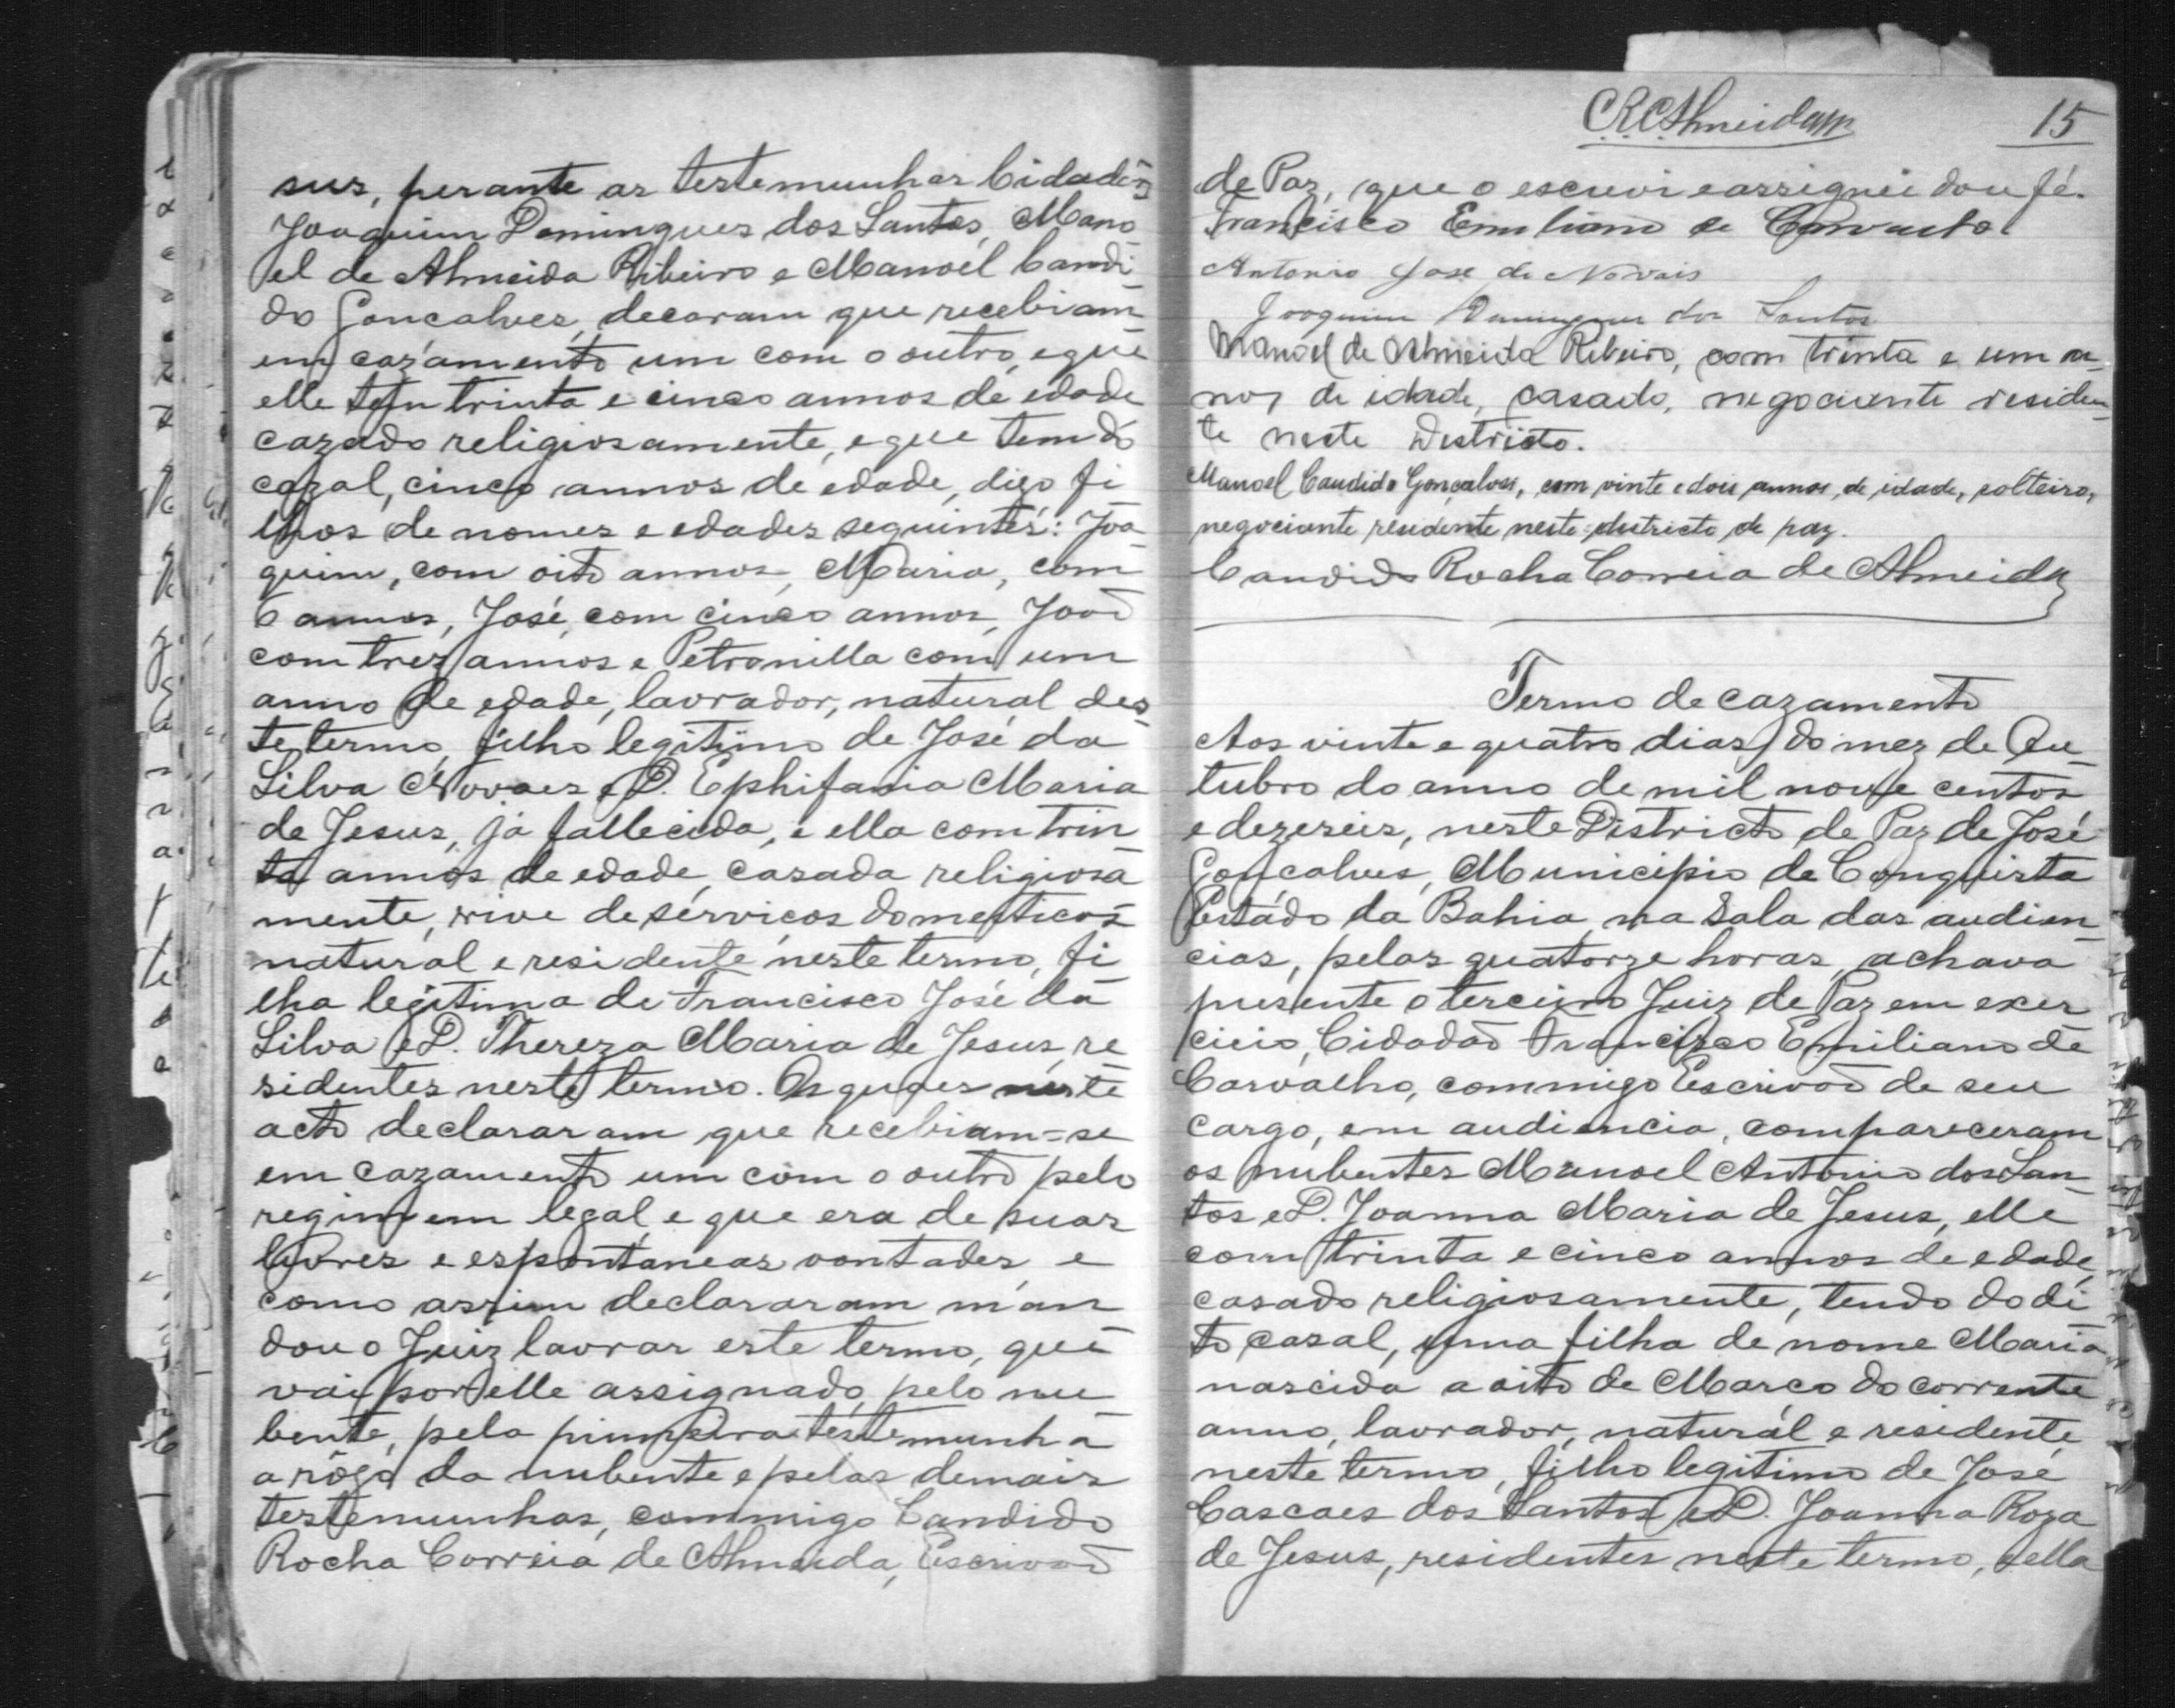 sus, perante as testemunhas Cidadões
Joaquim Domingues dos Santos, Mano
el de Almeida Ribeiro e Manoel Candi
do Gonçalves, decaram que recebiam
em cazamento um com o outro, e que
elle tem trinta e cinco annos de edade
cazado religiosamente, e que tem do
cazal, cinco annos de edade, digo fi
lhos de nomes e edades seguintes: Joa
quim, com oito annos, Maria, com
6 annos, José, com cinco annos, João
com trez annos e Petronilla com um
anno de edade, lavrador, natural des
te termo, filho legitimo de José da
Silva Novaes e D. Ephifania Maria
de Jesus, já fallecida, e ella com trin
ta annos de edade, casada religiosa
mente, vive de serviços domesticos
natural e residente neste termo, fi
lha legitima de Francisco José da
Silva e D. Thereza Maria de Jesus, re
sidentes neste termo. Os quaes neste
acto declararam que recebiam=se
em cazamento um com o outro pelo
regimem legal, e que era de suas
livres e espontaneas vontades, e
como assim declararam man
dou o Juiz lavrar este termo, que
vai por elle assignado, pelo nu
bente, pela primeira testemunha
a rôgo da nubente e pelas demais
testemunhas, commigo Candido
Rocha Correia de Almeida, Escrivão
CRCAlmeida 15
de Paz, que o escrevi e assignei dou fé.
Francisco Emiliano de Carvalho
Antonio Jose de Novais
Joaquim Domingues dos Santos
Manoel de Almeida Ribeiro, com trinta e um an
nos de idade, casado, negociente residen-
te neste Destricto.
Manoel Candido Gonçalves, com vinte e dois annos, de idade, solteiro,
negociante residente neste destricto de paz.
Candido Rocha Correia de Almeida
Termo de cazamento
Aos vinte e quatro dias do mez de Ou-
tubro do anno de mil nove centos
e dezeseis, neste Districto de Paz de José
Gonçalves, Municipio de Conquista
Estado da Bahia, na Sala das audien-
cias, pelas quatorze horas, achava
presente o terceiro Juiz de Paz em exer
cicio, Cidadão Francisco Emiliano de
Carvalho, commigo Escrivão de seu
cargo, em audiencia, compareceram
os nubentes Manoel Antonio dos San-
tos e D. Joanna Maria de Jesus, elle
com trinta e cinco annos de edade,
casado religiosamente, tendo do di
to casal, uma filha de nome Maria
nascida a oito de Março do corrente
anno, lavrador, natural e residente
neste termo, filho legitimo de José
Cascaes dos Santos e D. Joanna Roza
de Jesus, residentes neste termo, e ella